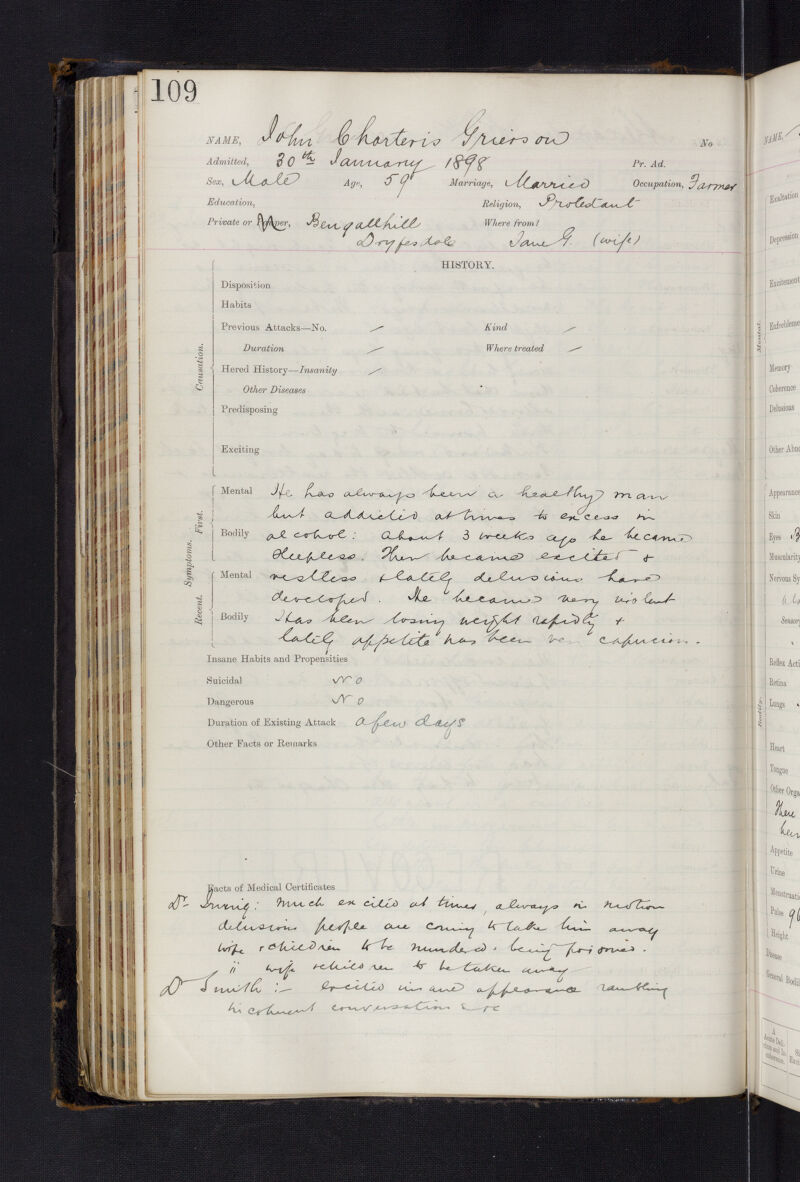 109
NAME, John Charteris Grierson No
Admitted, 30th January 1898 Pr. Ad.
Sex, Male Age, 59 Marriage, Married Occupation, Farmer
Education, Religion, Protestant
Private or Pauper, Bengallhill Where from?
Dryfesdale Jane G. (wife)
HISTORY.
Causation.
Disposition
Habits
Previous Attacks—No. — Kind —
Duration — Where treated —
Hered History—Insanity —
Other Diseases
Predisposing
Exciting
Symptoms.
First.
Mental He has always been a healthy man
but addicted at times to excess in
Bodily alcohol: About 3 weeks ago he became
sleepless. Then became excited &
Recent.
Mental restless & lately delusions have
developed. He became very violent
Bodily Has been losing weight rapidly &
lately appetite has been very capricious.
Insane Habits and Propensities
Suicidal No
Dangerous No
Duration of Existing Attack a few days
Other Facts or Remarks
Facts of Medical Certificates
Dr Irving: Much excited at times, always in motion
delusions people are coming to take him away
wife & children to be murdered & being poisoned.
" wife & children to be taken away
Dr Smith :- Excited insane appearance rambling
incoherent conversation &c
NAME,
Exaltation
Depression
Excitement
Enfeebleme
Mental.
Memory
Coherence
Delusions
Other Abno
Appearance
Skin
Eyes
Muscularity
Nervous Sy
Sensory
Reflex Acti
Retina
Bodily.
Lungs
Heart
Tongue
Other Orga
There
Appetite
Urine
Menstruati
Pulse 96
Height
Disease
General Bodil
A